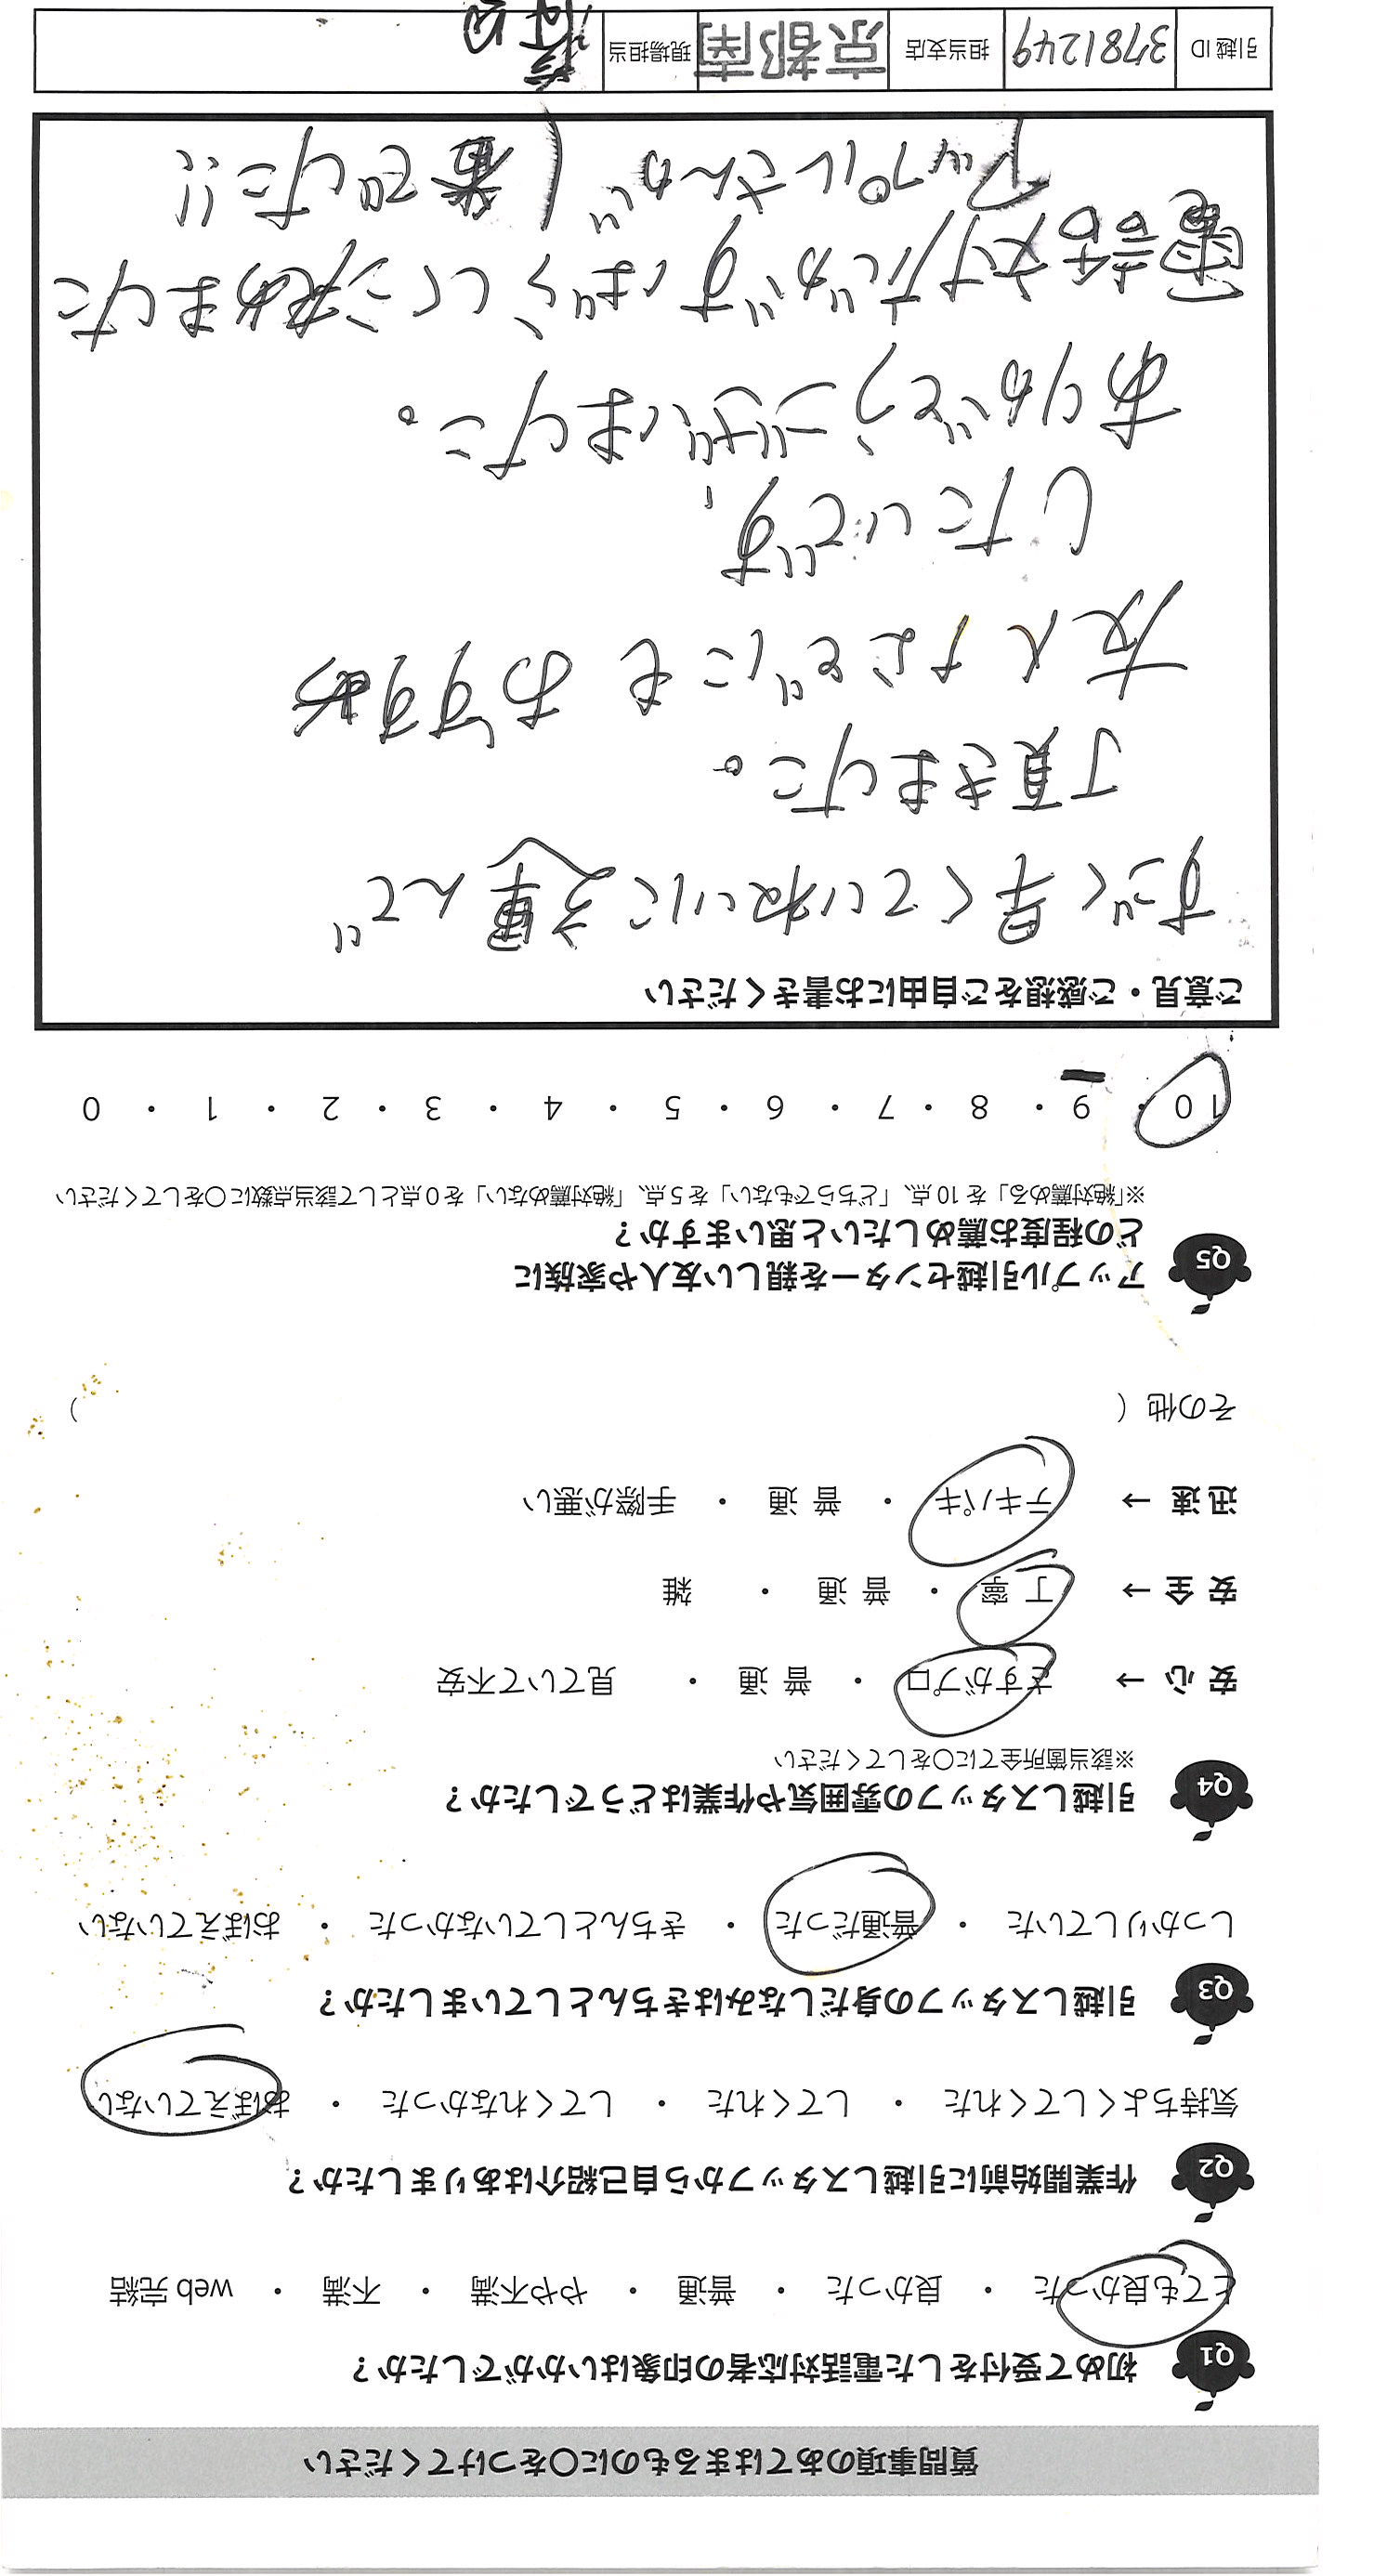 質問事項のあてはまるものに〇をつけてください
Q1 初めて受付をした電話対応者の印象はいかがでしたか？
とても良かった ・ 良かった ・ 普通 ・ やや不満 ・ 不満 ・ web 完結
Q2 作業開始前に引越しスタッフから自己紹介はありましたか？
気持ちよくしてくれた ・ してくれた ・ してくれなかった ・ おぼえていない
Q3 引越しスタッフの身だしなみはきちんとしていましたか？
しっかりしていた ・ 普通だった ・ きちんとしていなかった ・ おぼえていない
Q4 引越しスタッフの雰囲気や作業はどうでしたか？
※該当箇所全てに〇をしてください
安 心 → さすがプロ ・ 普 通 ・ 見ていて不安
安 全 → 丁 寧 ・ 普 通 ・ 雑
迅 速 → テキパキ ・ 普 通 ・ 手際が悪い
その他（ ）
Q5 アップル引越センターを親しい友人や家族に
どの程度お薦めしたいと思いますか？
※「絶対薦める」を 10 点、「どちらでもない」を 5 点、「絶対薦めない」を 0 点として該当点数に〇をしてください
10 ・ 9 ・ 8 ・ 7 ・ 6 ・ 5 ・ 4 ・ 3 ・ 2 ・ 1 ・ 0
ご意見・ご感想をご自由にお書きください
すごく早くていねいに運んで
頂きました。
友人などにもおすすめ
したいです、
ありがとうございました。
電話対応がすばらしく決めました
アップルさんが1番でした!!
引越 ID 3781249 担当支店 京都南 現場担当